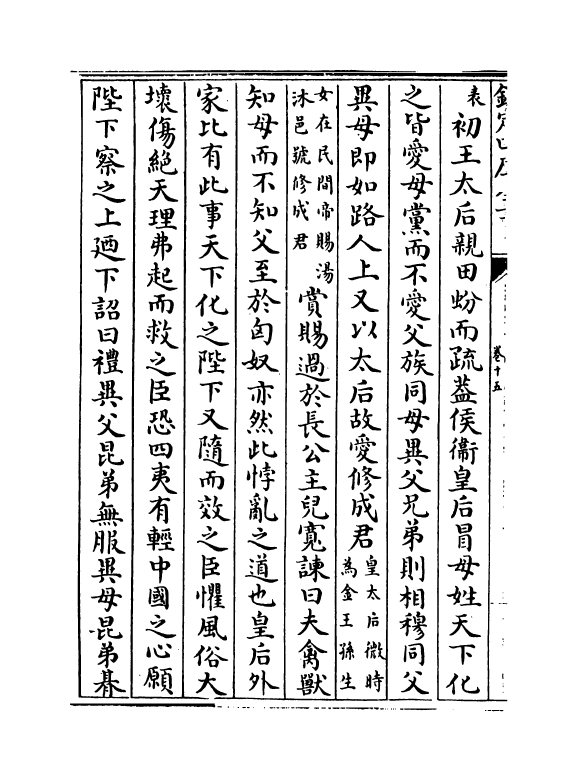 表
初王太后親田蚡而疏葢侯衞皇后冒母姓天下化
之皆愛母黨而不愛父族同母異父兄弟則相穆同父
異母即如路人上又以太后故愛修成君
皇太后微時
為金王孫生
女在民間帝賜湯
沐邑號修成君
賞賜過於長公主兒寛諫曰夫禽獸
知母而不知父至於匈奴亦然此悖亂之道也皇后外
家比有此事天下化之陛下又隨而效之臣懼風俗大
壞傷絕天理弗起而救之臣恐四夷有輕中國之心願
陛下察之上廼下詔曰禮異父昆弟無服異母昆弟朞
卷十五